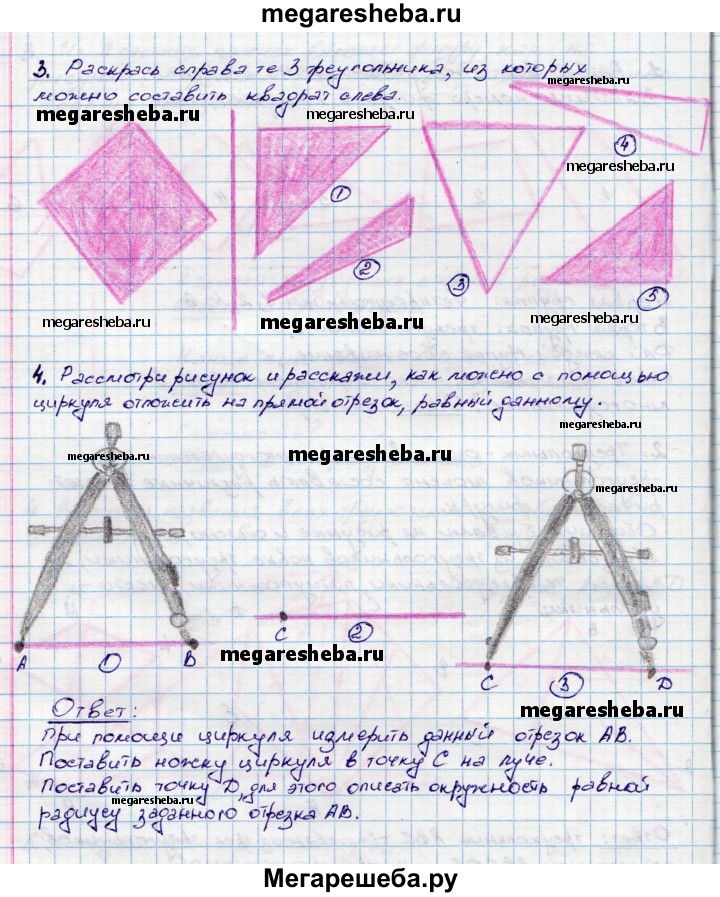 megaresheba.ru
3. Раскрась справа те 3 треугольника, из которых
megaresheba.ru
можно составить квадрат слева.
megaresheba.ru
megaresheba.ru
4
megaresheba.ru
1
2
3
5
megaresheba.ru
megaresheba.ru
megaresheba.ru
4. Рассмотри рисунок и расскажи, как можно с помощью
циркуля отложить на прямой отрезок, равный данному.
megaresheba.ru
megaresheba.ru
megaresheba.ru
megaresheba.ru
A 1 B
C 2
megaresheba.ru
C 3 D
megaresheba.ru
Ответ:
При помощи циркуля измерить данный отрезок AB.
Поставить ножку циркуля в точку C на луче.
Поставить точку D, для этого описать окружность равной
megaresheba.ru
радиусу заданного отрезка AB.
megaresheba.ru
Мегарешеба.ру